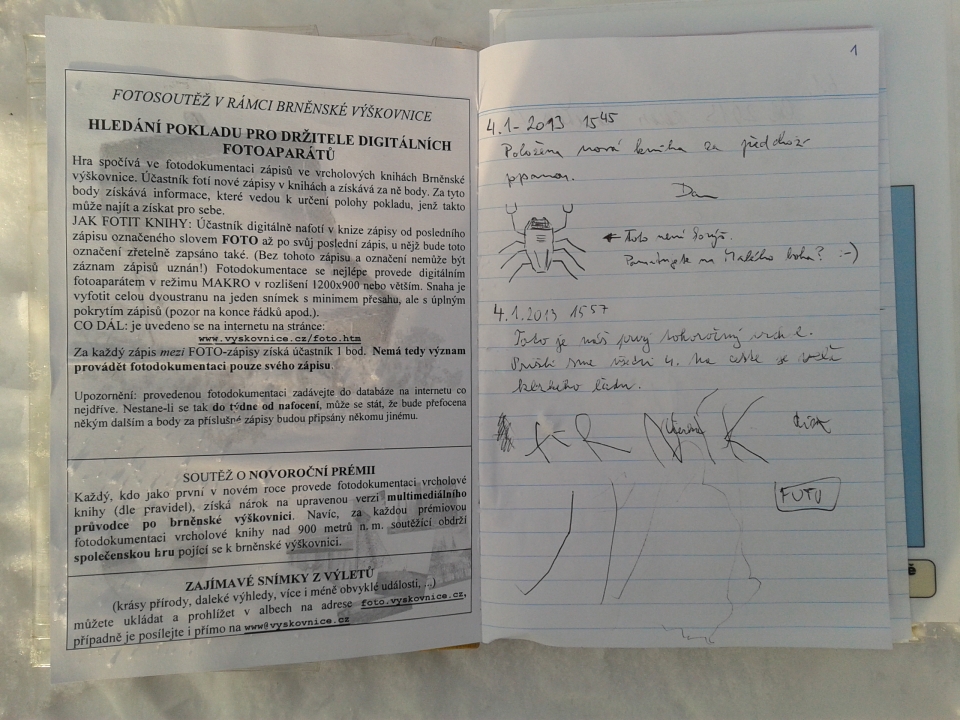 FOTOSOUTĚŽ V RÁMCI BRNĚNSKÉ VÝŠKOVNICE
HLEDÁNÍ POKLADU PRO DRŽITELE DIGITÁLNÍCH
FOTOAPARÁTŮ
Hra spočívá ve fotodokumentaci zápisů ve vrcholových knihách Brněnské
výškovnice. Účastník fotí nové zápisy v knihách a získává za ně body. Za tyto
body získává informace, které vedou k určení polohy pokladu, jenž takto
může najít a získat pro sebe.
JAK FOTIT KNIHY: Účastník digitálně nafotí v knize zápisy od posledního
zápisu označeného slovem FOTO až po svůj poslední zápis, u nějž bude toto
označení zřetelně zapsáno také. (Bez tohoto zápisu a označení nemůže být
záznam zápisů uznán!) Fotodokumentace se nejlépe provede digitálním
fotoaparátem v režimu MAKRO v rozlišení 1200x900 nebo větším. Snaha je
vyfotit celou dvoustranu na jeden snímek s minimem přesahu, ale s úplným
pokrytím zápisů (pozor na konce řádků apod.).
CO DÁL: je uvedeno se na internetu na stránce:
www.vyskovnice.cz/foto.htm
Za každý zápis mezi FOTO-zápisy získá účastník 1 bod. Nemá tedy význam
provádět fotodokumentaci pouze svého zápisu.
Upozornění: provedenou fotodokumentaci zadávejte do databáze na internetu co
nejdříve. Nestane-li se tak do týdne od nafocení, může se stát, že bude přefocena
někým dalším a body za příslušné zápisy budou připsány někomu jinému.
SOUTĚŽ O NOVOROČNÍ PRÉMII
Každý, kdo jako první v novém roce provede fotodokumentaci vrcholové
knihy (dle pravidel), získá nárok na upravenou verzi multimediálního
průvodce po brněnské výškovnici. Navíc, za každou prémiovou
fotodokumentaci vrcholové knihy nad 900 metrů n. m. soutěžící obdrží
společenskou hru pojící se k brněnské výškovnici.
ZAJÍMAVÉ SNÍMKY Z VÝLETŮ
(krásy přírody, daleké výhledy, více i méně obvyklé události, ...)
můžete ukládat a prohlížet v albech na adrese foto.vyskovnice.cz,
případně je posílejte i přímo na www@vyskovnice.cz
1
4.1-2013 15 45
Položena nová kniha za předchozí
Dan
← Toto není
na Malého boha? :-)
4.1.2013 15 57
Toto je náš prvý tohoročný vrchol.
sme všetci 4. na ceste
FOTO